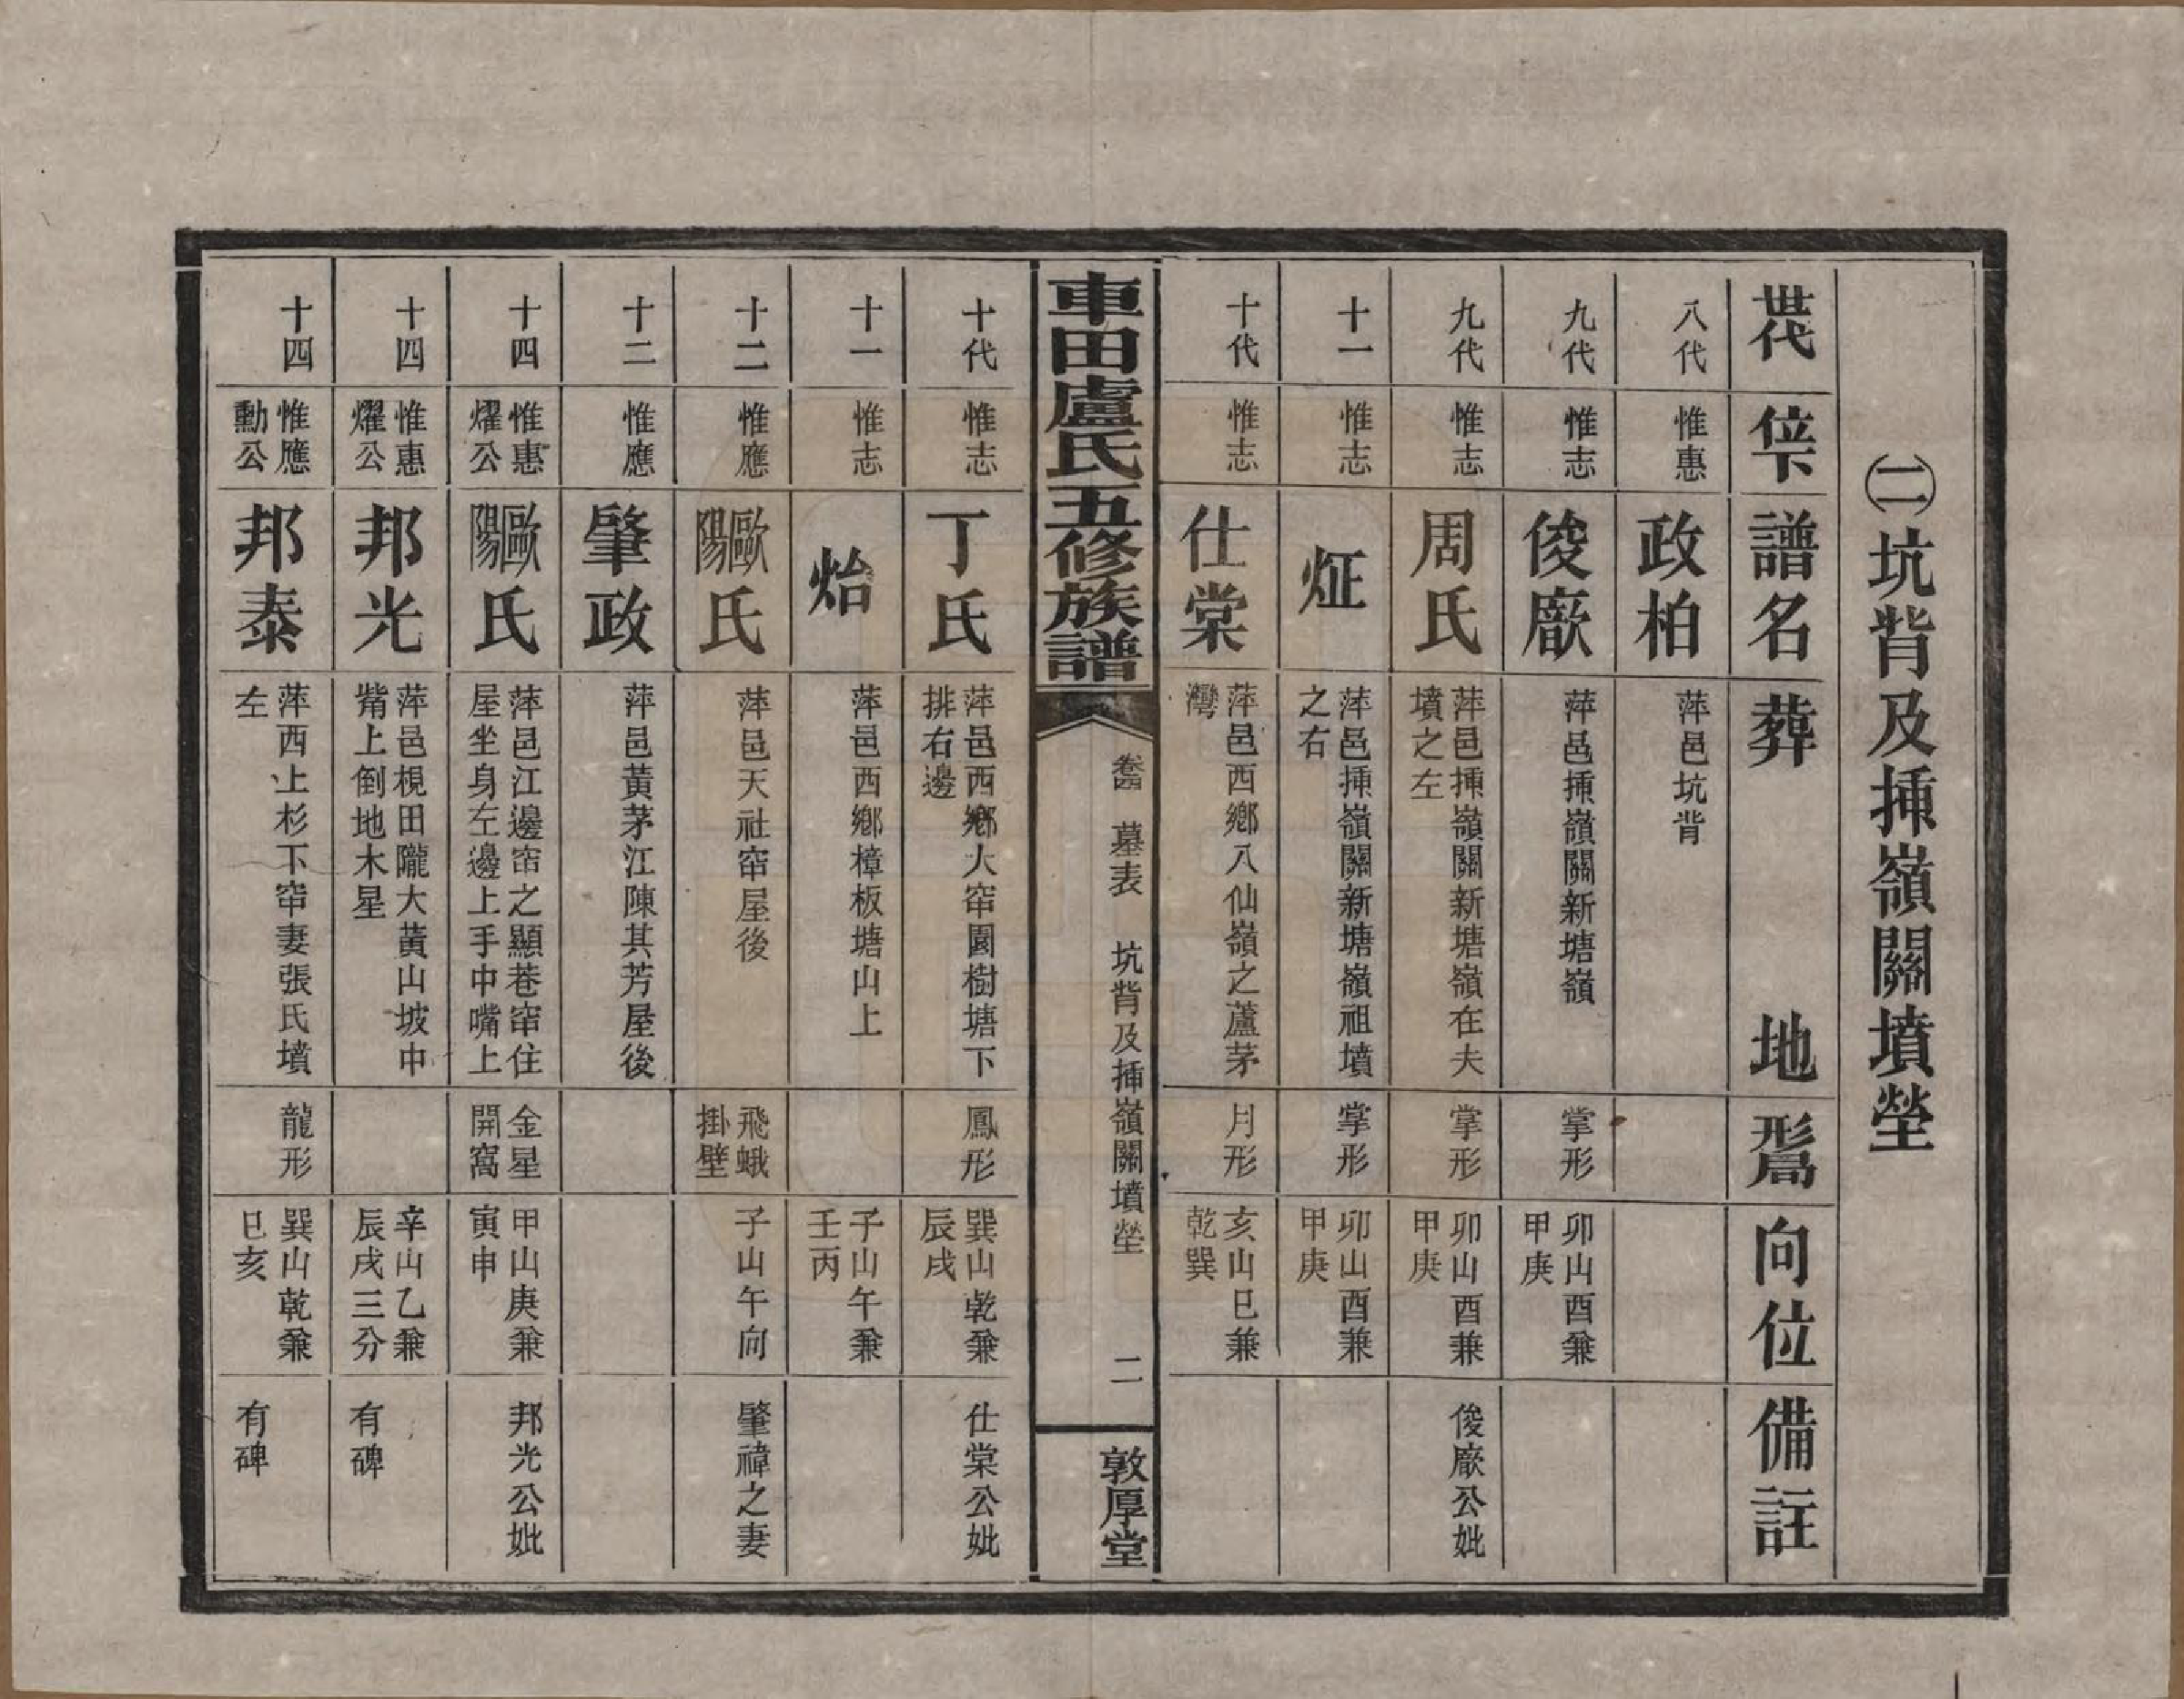 ㈡坑背及揷嶺關墳塋
世代 位下 譜名 葬地 形局 向位 備註
八代 惟惠 政柏 萍邑坑背
九代 惟志 俊廠 萍邑揷嶺關新塘嶺 掌形 卯山酉兼甲庚
九代 惟志 周氏 萍邑揷嶺關新塘嶺在夫墳之左 掌形 卯山酉兼甲庚 俊廠公妣
十一 惟志 炡 萍邑揷嶺關新塘嶺祖墳之右 掌形 卯山酉兼甲庚
十代 惟志 仕棠 萍邑西鄉八仙嶺之蘆茅灣 月形 亥山巳兼乾巽
車田盧氏五修族譜 卷四 墓表 坑背及揷嶺關墳塋 二 敦厚堂
十代 惟志 丁氏 萍邑西鄉大窂園樹塘下排右邊 鳳形 巽山乾兼辰戌 仕棠公妣
十一 惟志 炲 萍邑西鄉樟板塘山上 子山午兼壬丙
十二 惟應 歐陽氏 萍邑天社窂屋後 飛蛾掛壁 子山午向 肇禕之妻
十二 惟應 肇政 萍邑黃茅江陳其芳屋後
十四 惟惠燿公 歐陽氏 萍邑江邊窂之顯巷窂住屋坐身左邊上手中嘴上 金星開窩 甲山庚兼寅申 邦光公妣
十四 惟惠燿公 邦光 萍邑梘田隴大黃山坡中觜上倒地木星 辛山乙兼辰戌三分 有碑
十四 惟應勳公 邦泰 萍西上杉下窂妻張氏墳左 龍形 巽山乾兼巳亥 有碑